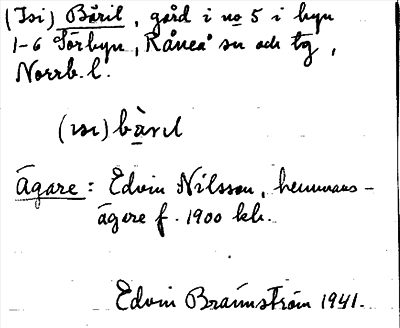 (Isi) Båril, gård i no 5 i byn
1-6 Sörbyn, Råneå sn och tg,
Norrb. l.
(ısı) bàrıl
Ägare: Edvin Nilsson, hemmans-
ägare f. 1900 kh.
Edvin Brännström 1941.